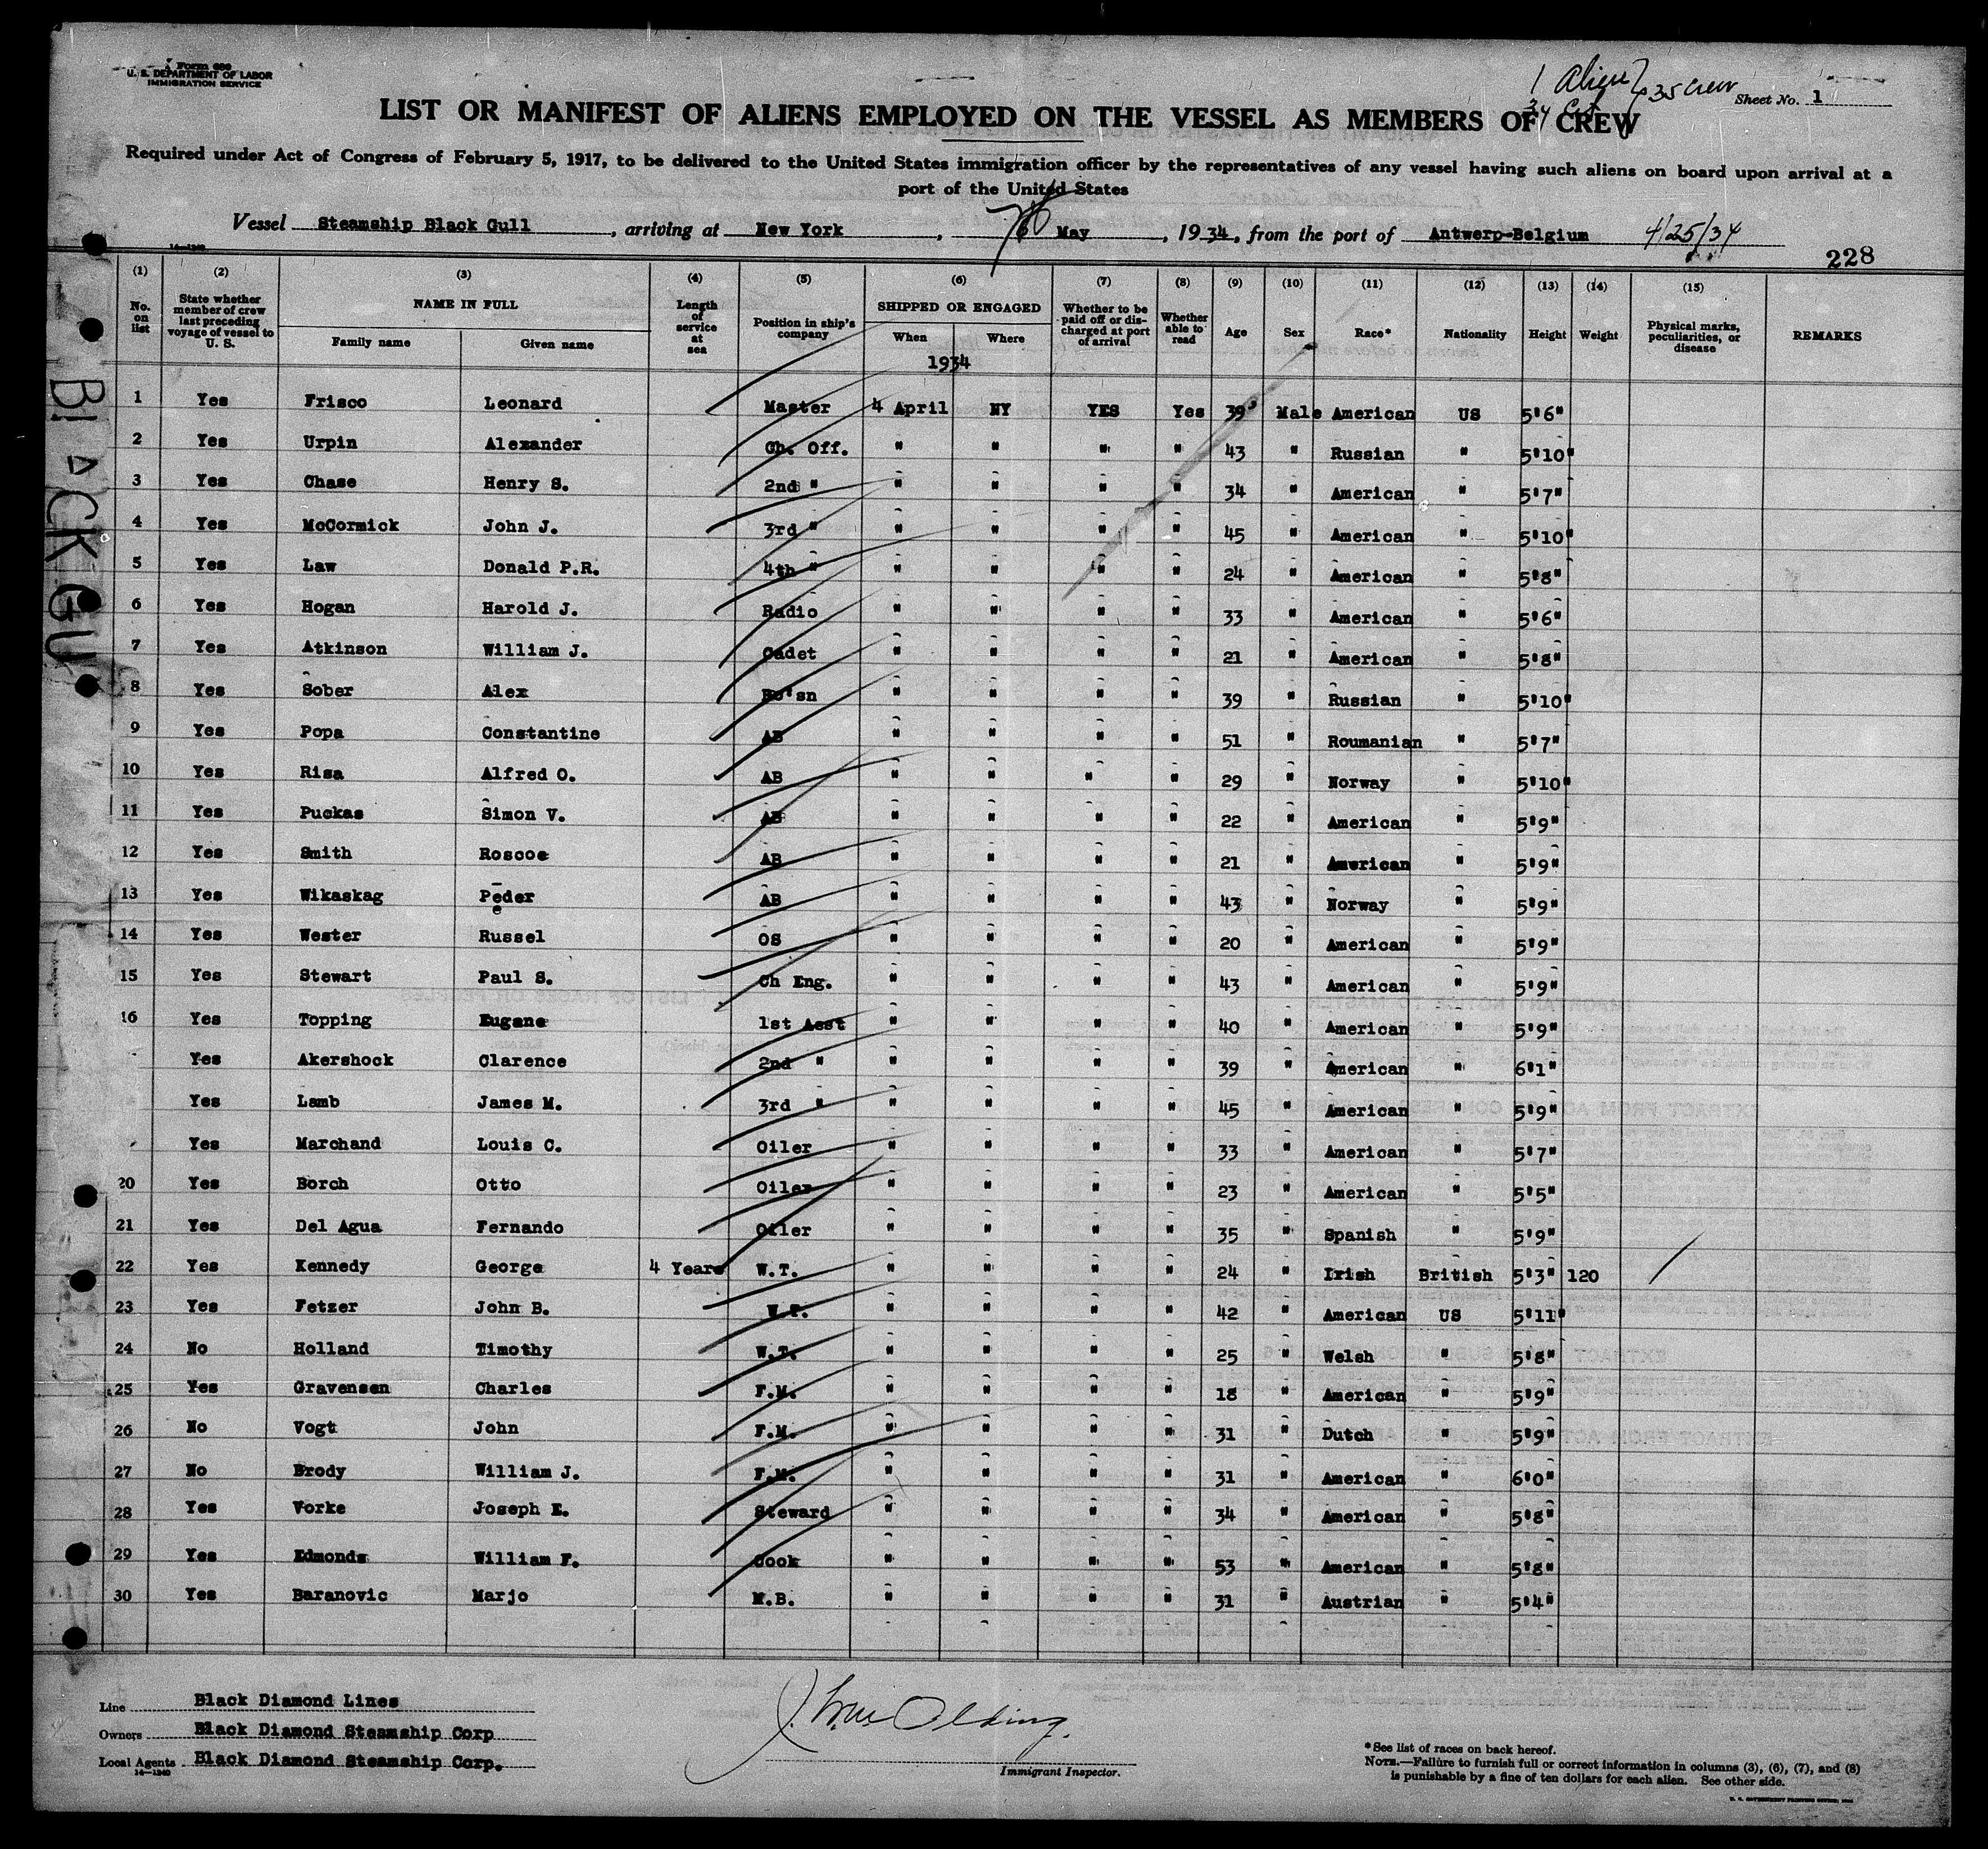 Form 680
U. S. DEPARTMENT OF LABOR
IMMIGRATION SERVICE
1 Alien
34 Cit
35 crew
Sheet No. 1
LIST OR MANIFEST OF ALIENS EMPLOYED ON THE VESSEL AS MEMBERS OF CREW
Required under Act of Congress of February 5, 1917, to be delivered to the United States immigration officer by the representatives of any vessel having such aliens on board upon arrival at a
port of the United States
Vessel Steamship Black Gull, arriving at New York, May, 1934, from the port of Antwerp-Belgium 4/25/34
14—1240
228
BLACK GU
(1) (2) (3) (4) (5) (6) (7) (8) (9) (10) (11) (12) (13) (14) (15)
No. on list State whether member of crew last preceding voyage of vessel to U. S. NAME IN FULL Family name Given name Length of service at sea Position in ship's company SHIPPED OR ENGAGED When Where Whether to be paid off or discharged at port of arrival Whether able to read Age Sex Race* Nationality Height Weight Physical marks, peculiarities, or disease REMARKS
1934
1 Yes Frisco Leonard Master 4 April NY YES Yes 39 Male American US 5'6"
2 Yes Urpin Alexander Ch. Off. " " " " 43 " Russian " 5'10"
3 Yes Chase Henry S. 2nd " " " " " 34 " American " 5'7"
4 Yes McCormick John J. 3rd " " " " " 45 " American " 5'10"
5 Yes Law Donald P.R. 4th " " " " " 24 " American " 5'8"
6 Yes Hogan Harold J. Radio " " " " 33 " American " 5'6"
7 Yes Atkinson William J. Cadet " " " " 21 " American " 5'8"
8 Yes Sober Alex Bo'sn " " " " 39 " Russian " 5'10"
9 Yes Popa Constantine AB " " " " 51 " Roumanian " 5'7"
10 Yes Risa Alfred O. AB " " " " 29 " Norway " 5'10"
11 Yes Puckas Simon V. AB " " " " 22 " American " 5'9"
12 Yes Smith Roscoe AB " " " " 21 " American " 5'9"
13 Yes Wikaskag Peder AB " " " " 43 " Norway " 5'9"
14 Yes Wester Russel OS " " " " 20 " American " 5'9"
15 Yes Stewart Paul S. Ch Eng. " " " " 43 " American " 5'9"
16 Yes Topping Eugene 1st Asst " " " " 40 " American " 5'9"
Yes Akershock Clarence 2nd " " " " " 39 " American " 6'1"
Yes Lamb James M. 3rd " " " " " 45 " American " 5'9"
Yes Marchand Louis C. Oiler " " " " 33 " American " 5'7"
20 Yes Borch Otto Oiler " " " " 23 " American " 5'5"
21 Yes Del Agua Fernando Oiler " " " " 35 " Spanish " 5'9"
22 Yes Kennedy George 4 Years W.T. " " " " 24 " Irish British 5'3" 120
23 Yes Fetzer John B. W.T. " " " " 42 " American US 5'11"
24 No Holland Timothy W.T. " " " " 25 " Welsh " 5'8"
25 Yes Gravensen Charles F.M. " " " " 18 " American " 5'9"
26 No Vogt John F.M. " " " " 31 " Dutch " 5'9"
27 No Brody William J. F.M. " " " " 31 " American " 6'0"
28 Yes Vorke Joseph E. Steward " " " " 34 " American " 5'8"
29 Yes Edmonds William F. Cook " " " " 53 " American " 5'8"
30 Yes Baranovic Marjo M.B. " " " " 31 " Austrian " 5'4"
Line Black Diamond Lines
Owners Black Diamond Steamship Corp
Local Agents Black Diamond Steamship Corp.
14—1240
Immigrant Inspector.
*See list of races on back hereof.
NOTE.—Failure to furnish full or correct information in columns (3), (6), (7), and (8)
is punishable by a fine of ten dollars for each alien. See other side.